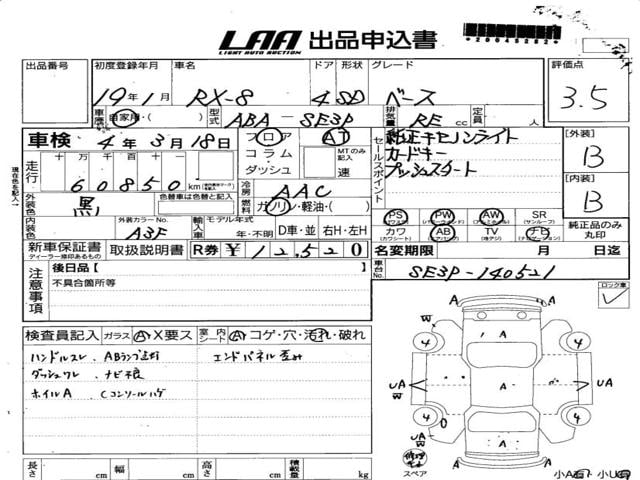 LAA 出品申込書
LIGHT AUTO AUCTION
*20045252*
出品番号 初度登録年月 車名 ドア 形状 グレード 評価点
19年1月 RX-8 4 SD ベース 3.5
車歴 自家用・( ) 型式 ABA－SE3P 排気量 RE cc 定員 人
車検 4年3月18日 フロア AT
コラム MTのみ記入
ダッシュ 速
セールスポイント 純正キセノンライト
カードキー
プッシュスタート
[外装] B
[内装] B
現在色を記入
走行 十万千百十 60850 km
冷房 AAC
外装色 黒 色替車は色替と記入 燃料 ガソリン・軽油・( )
内装色 外装カラーNo. A3F 輸入車 モデル年式 年・不明 D車・並 右H・左H
PS PW AW SR
(パワーステアリング) (パワーウィンドウ) (アルミホイール) (サンルーフ)
カワ AB TV ナビ
(カワシート) (エアバッグ) (地デジ) (ナビゲーション)
純正品のみ丸印
新車保証書 取扱説明書 R券 ¥12,520
ディーラー捺印あるもの
名変期限 月 日迄
車台No. SE3P-140521
注意事項 後日品[ ]
不具合箇所等
ロック車
検査員記入 ガラス A・X要ス 室内 シート A・コゲ・穴・汚れ・破れ
ハンドルスレ ABランプ点灯 エンドパネル歪み
ダッシュワレ ナビ不良
ホイルA Cコンソールハゲ
長さ cm 幅 cm 高さ cm 積載量 kg
A A
W
4 A 4
UA W A A A UA
4 4
UA W A
修理キット
スペア
A A
小A 小U